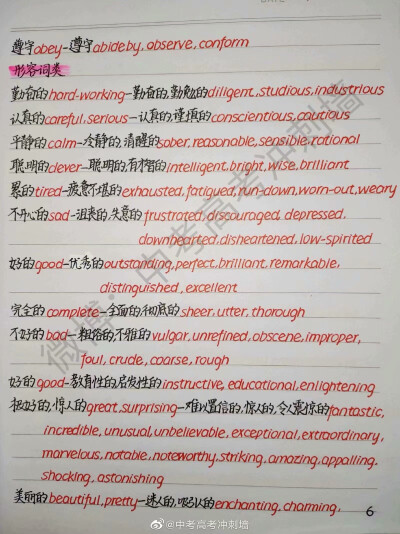 遵守obey-遵守abide by, observe, conform
形容词类
勤奋的hard-working-勤奋的,勤勉的diligent, studious, industrious
认真的careful, serious-认真的,谨慎的conscientious, cautious
平静的calm-冷静的,清醒的sober, reasonable, sensible, rational
聪明的clever-聪明的,有才智的intelligent, bright, wise, brilliant
累的tired-疲惫不堪的exhausted, fatigued, run-down, worn-out, weary
不开心的sad-沮丧的,失意的frustrated, discouraged, depressed,
downhearted, disheartened, low-spirited
好的good-优秀的outstanding, perfect, brilliant, remarkable,
distinguished, excellent
完全的complete-全面的,彻底的sheer, utter, thorough
不好的bad-粗俗的,不雅的vulgar, unrefined, obscene, improper,
foul, crude, coarse, rough
好的good-教育性的,启发性的instructive, educational, enlightening
极好的,惊人的great, surprising-难以置信的,惊人的,令人震惊的fantastic,
incredible, unusual, unbelievable, exceptional, extraordinary,
marvelous, notable, noteworthy, striking, amazing, appalling,
shocking, astonishing
美丽的beautiful, pretty-迷人的,吸引人的enchanting, charming,
6
微博:中考高考冲刺墙
@中考高考冲刺墙